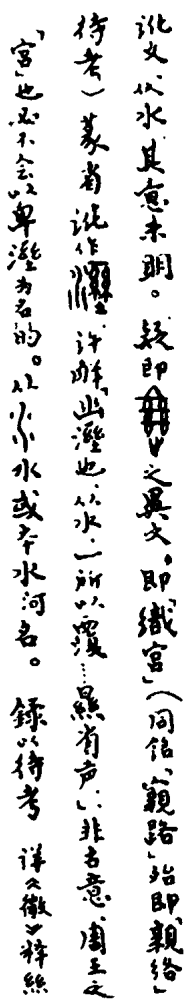 訛文,从水.其意未明。疑即之異文,即「織宮」(同銘「親路」殆即「親絡」
待考)篆省訛作.許解「幽溼也,从水,一所以覆……㬎省声」,非古意.周王之
「宮」也必不会以卑溼为名的。从水或本水河名。録以待考 详《徵》释絲